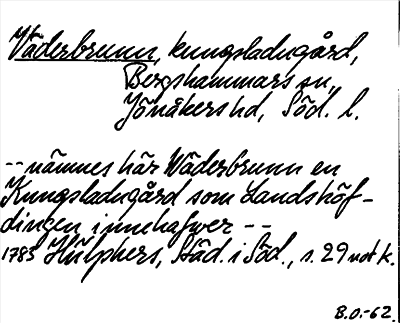 Väderbrunn, kungsladugård,
Bergshammars sn,
Jönåkers hd, Söd. l.
-- nämnes här Wäderbrunn en
Kungsladugård som Landshöf-
dingen innehafwer --
1783 Hülphers, Städ. i Söd., s. 29 not k.
B.O.-62.